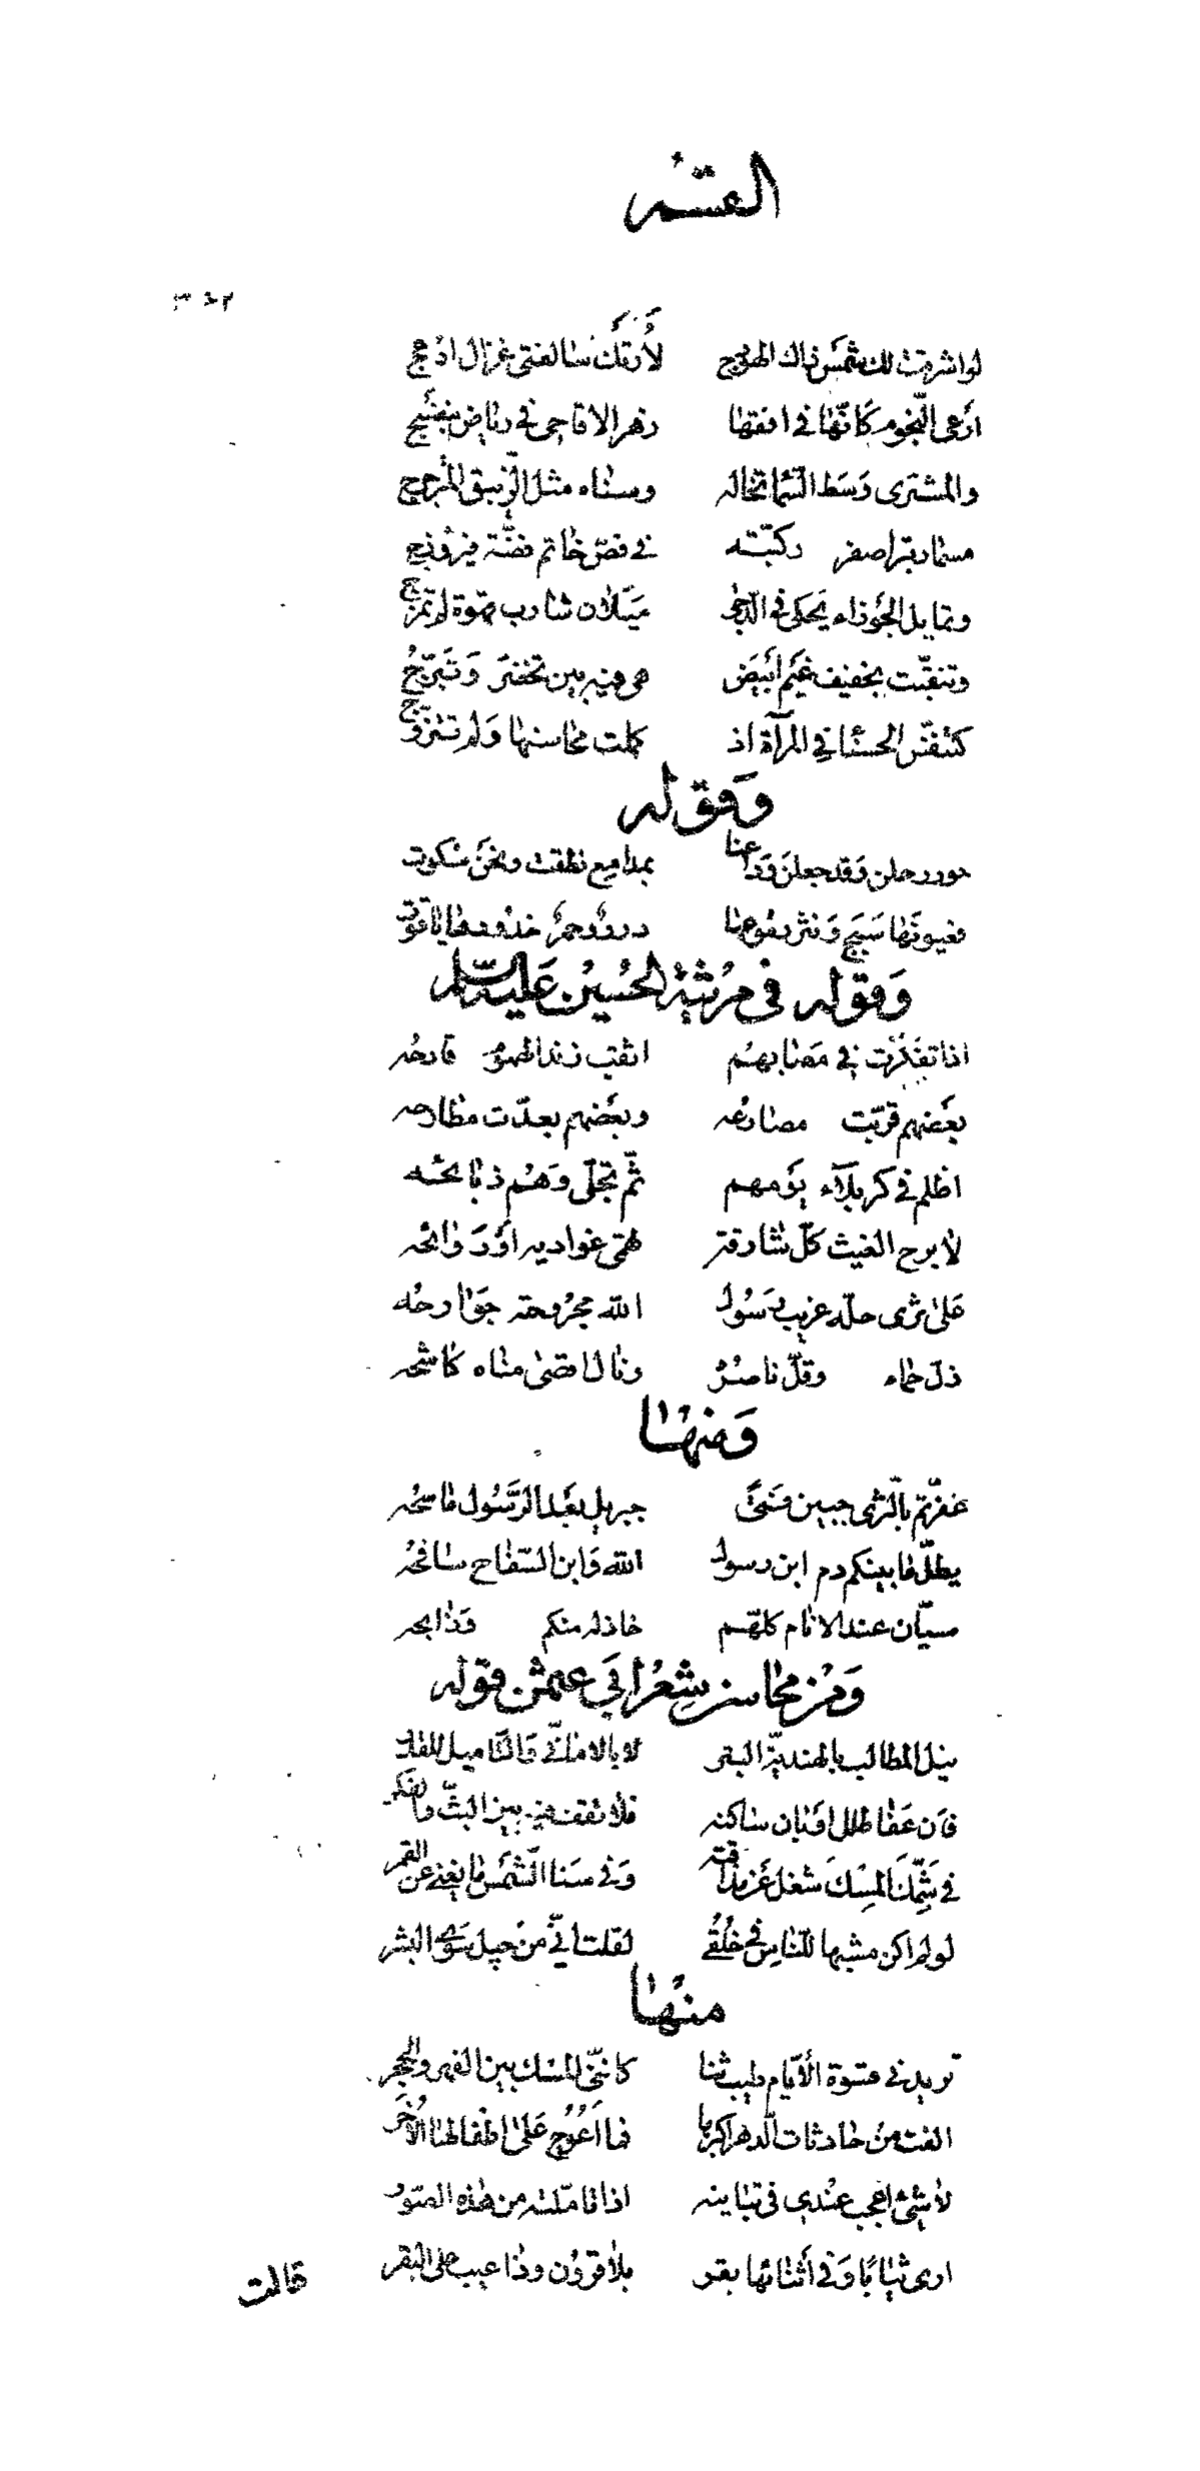 القسم
٣٤٢
لو اشرقت لك شمس ذاك الهودج لأرتك سالفتي غزال ادعج
أرعى النجوم كأنّها في افقها زهر الاقاحي في رياض بنفسج
والمشترى وَسَط السّما تخاله وسناه مثل الزّيبق المترجرج
مسمار تبر اصفر ركّبته في فصّ خاتم فضّة فيروزج
وتمايل الجوزاء يحكى في الدّجى ميلان شارب قهوة لم تمزج
وتنقّبت بخفيف غيم أبيض هي فيه بين تخفّر وَتَبرّج
كتنفّس الحسنا في المرآة اذ كملت محاسنها وَلم تتزوّج
وَقوله
حور رحلن وَقد جعلن وَداعنا بمدامع نطقت ونحن سكوت
فعيونها سَبَج وَنثر دموعها درر وحمر خدودها ياقوت
وَقوله في مرثية الحُسين عَليه السّلم
اذا تفكّرت في مصابهم اثقب زند الهموم قادحه
بعضهم قرّبت مصارعه وبعضهم بعدّت مطارحه
اظلم في كربلآء يومهم ثمّ تجلّى وَهم ذبائحه
لا برح الغيث كلّ شارقة تهمى غواديه أو رَوائحه
عَلى ثرى حلّه غريب رَسُول الله مجرُوحة جوارحه
ذلّ حماه وقلّ ناصره ونال اقصى مناه كاشحه
وَمنها
عفّرتم بالثّرى جبين فتىً جبريل بعد الرّسُول ماسحه
يطلّ ما بينكم دم ابن رسول الله وَابن السّفاح سافحه
سيّان عند الانام كلّهم خاذله منكم وَذابحه
وَمن محاسن شعر ابي عثمن قوله
نيل المطالب بالهنديّة البتر لا بالاماني والتّاميل للقدر
فان عَفا طلل او بان ساكنه فلا تقف فيه بين البثّ والفكر
في شَمِّكَ المِسْكَ شغل عَن مذاقته وَفي سَنا الشّمس ما يغني عن القمر
لو لم اكن مشبها للنّاس في خُلُقي لقلت انّي من جيل سوى البشر
منها
تزيدني قسوة الأيّام طيب ثنا كانّني المسك بين الفهر والحجر
الفت من حادثات الدّهر اكبرها فما اعوج عَلى اطفالها الاُخر
لا شيء اعجب عندي في تباينه اذا تامّلته من هذه الصّور
ارى ثيابًا وَفي أثنائها بقر بلا قرون وذا عيب على البقر
قالت